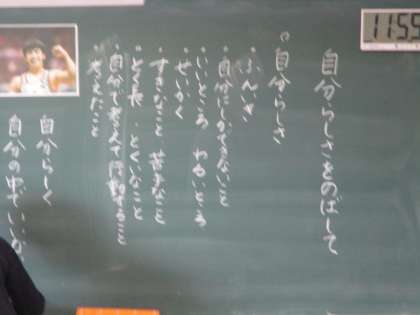 自分らしさをのばして
自分らしさ
自分にしかできないこと
いいところ わるいところ
せいかく
すきなこと 苦手なこと
とくいなこと
自分で考えて行動すること
考えたこと
自分らしく
自分の中で
11:55